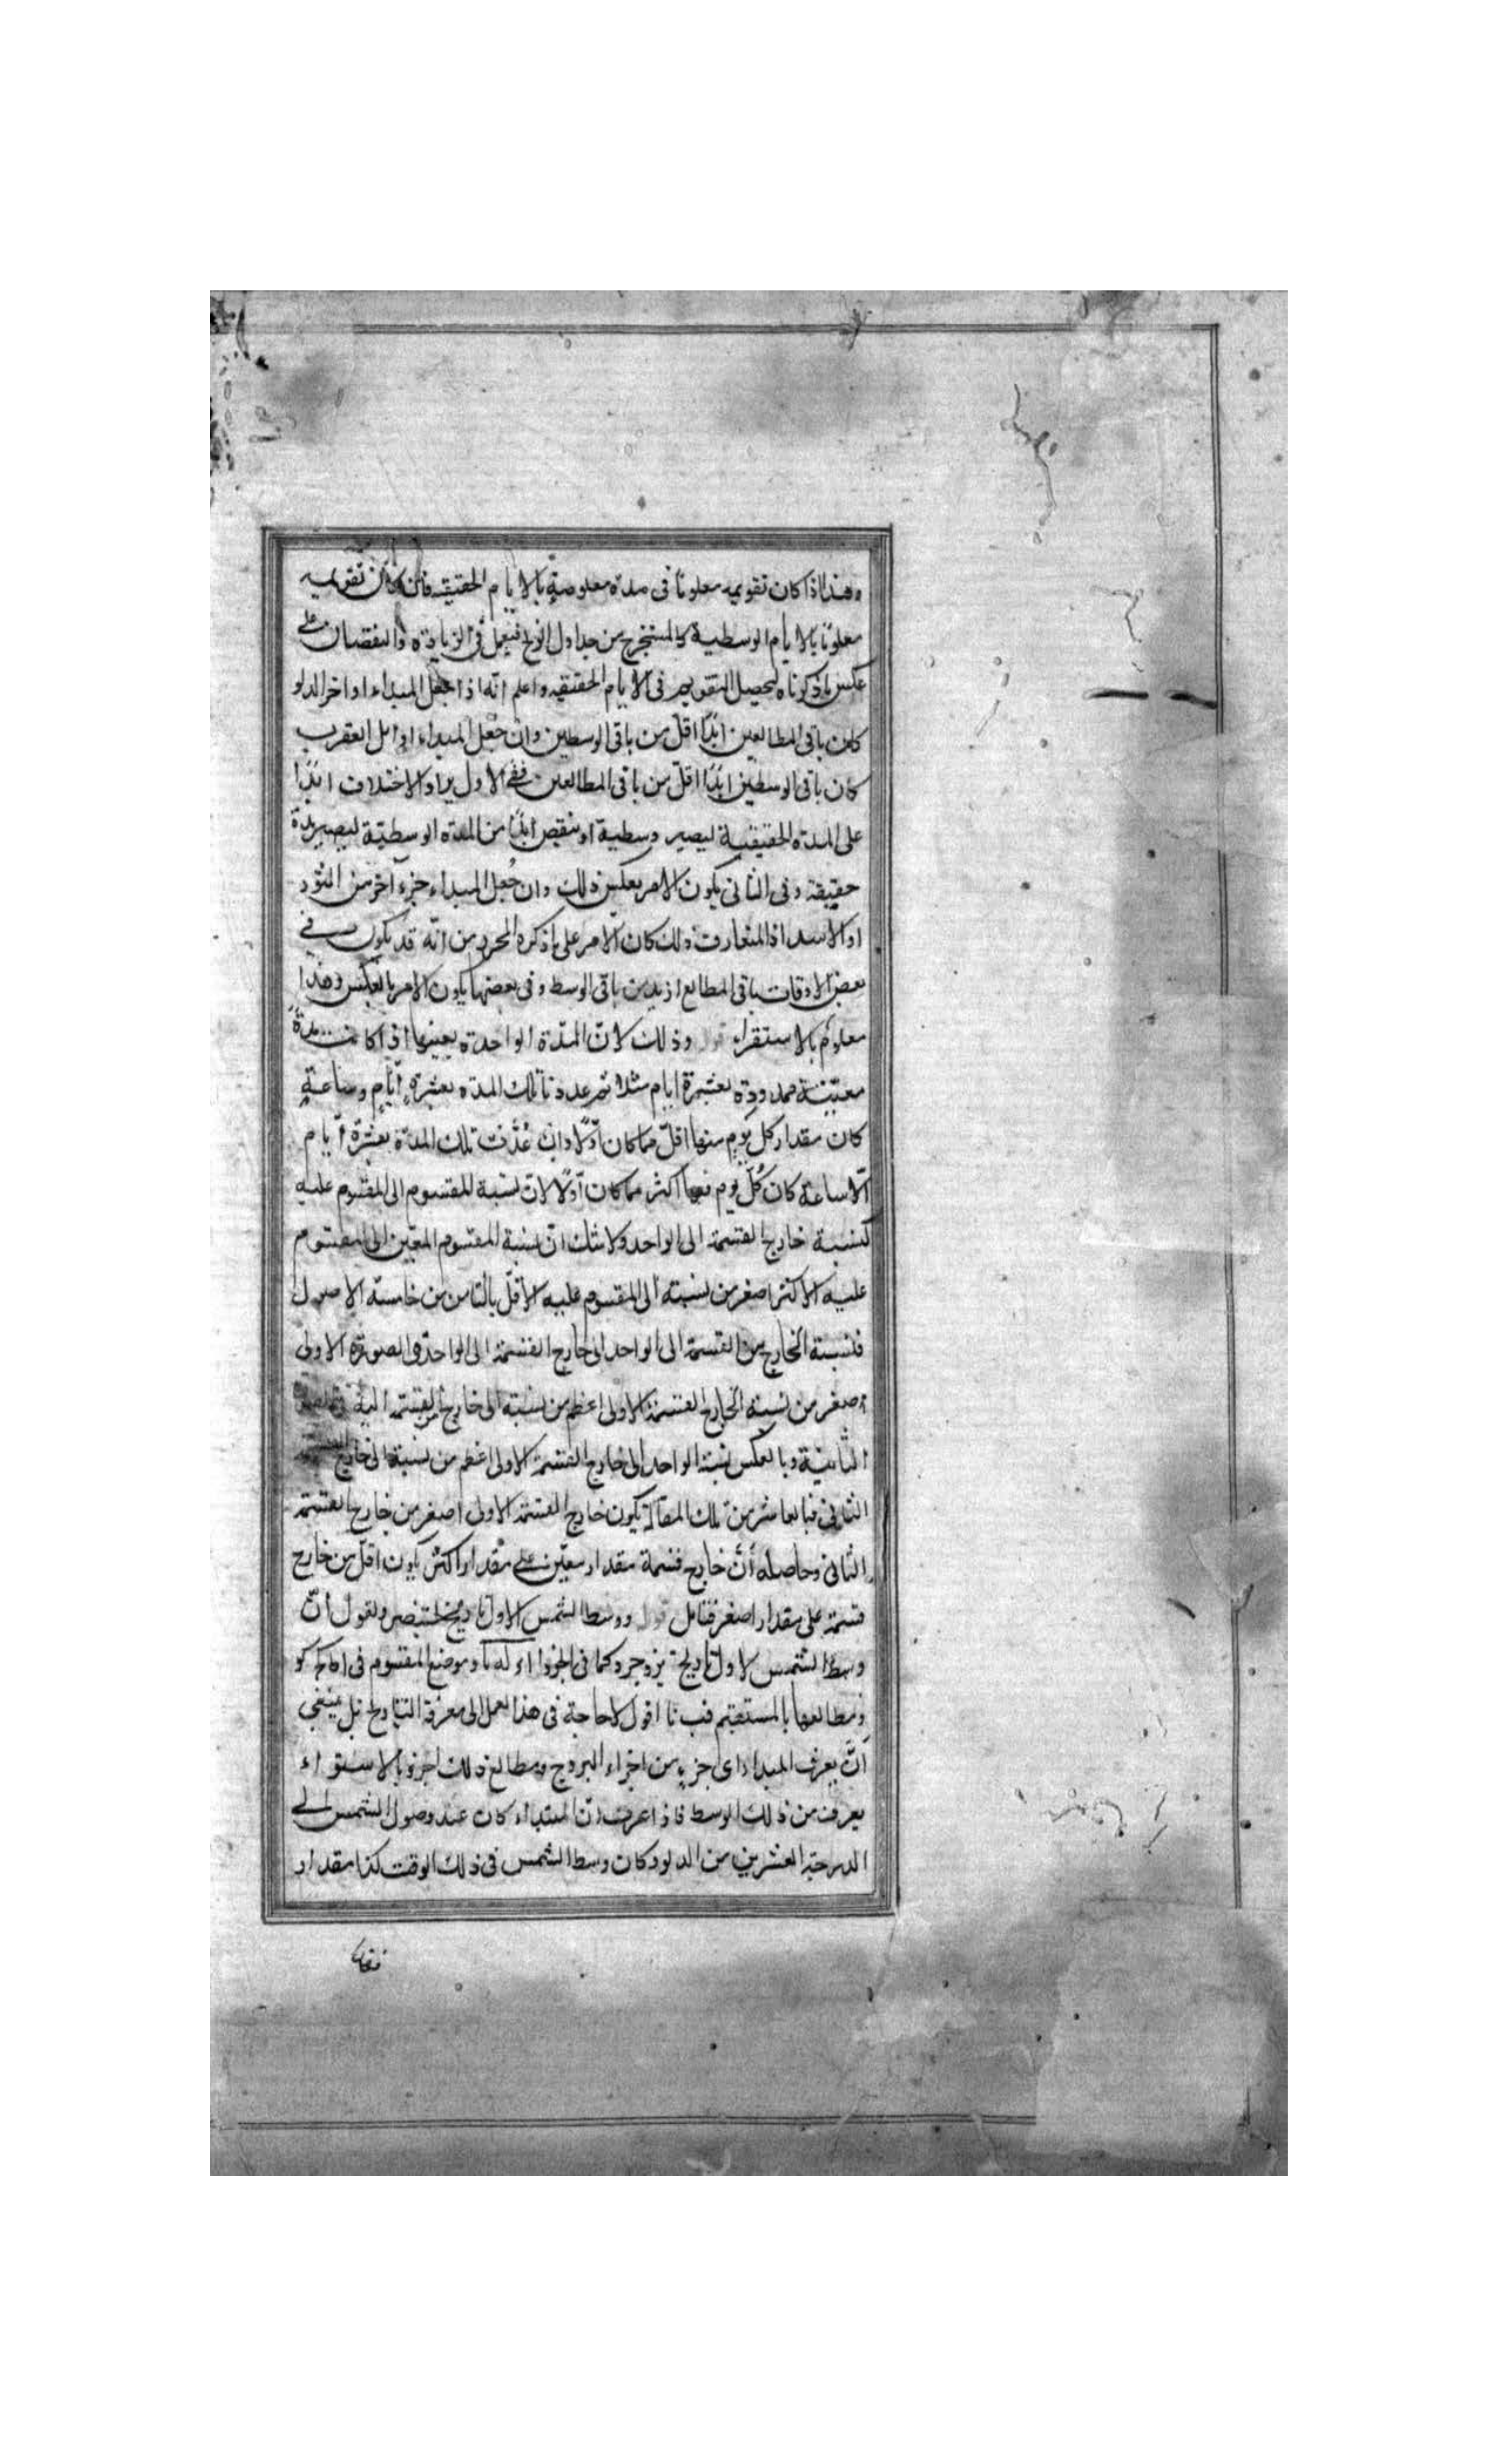 وهذا اذا كان تقويمه معلوما فى مدة معلومة بالايام الحقيقيه فان كان تقويمه
معلومًا بالايام الوسطية كالمستخرج من جداول الزيج فيعمل فى الزيادة والنقصان على
عكس ما ذكرناه لتحصيل التقويم فى الايام الحقيقيه واعلم انه اذا جعل المبداء اواخر الدلو
كان باقى المطالعين ابدًا اقل من باقى الوسطين وان جُعل المبداء اوايل العقرب
كان باقى الوسطين ابدًا اقلّ من باقى المطالعين ففى الاول يزاد الاختلاف ابدًا
على المدة الحقيقية ليصير وسطية او ينقص ابدًا من المدة الوسطيّة ليصير مدة
حقيقة وفى الثانى يكون الامر بعكس ذلك وان جُعل المبداء جزء آخر من الثور
او الاسد اذ المتعارف ذلك كان الامر على ما ذكره المحرر من انّه قد يكون فى
بعض الاوقات باقى المطالع ازيد من باقى الوسط وفى بعضها يكون الامر بالعكس وهذا
معلوم بالاستقراء قوله وذلك لانّ المدّة الواحدة بعينها اذا كانت مدةً
معيّنة معدودة بعشرة ايام مثلا ثم عددنا تلك المدة بعشرة أيّامٍ وساعةٍ
كان مقدار كل يومٍ منها اقلّ مما كان اوّلا وان عُدّت تلك المدّة بعشرة أيام
الّا ساعة كان كُلّ يوم منها اكثر مما كان أولًا لانّ نسبة المقسوم الى المقسوم عليه
كنسبة خارج القسمة الى الواحد ولا شك انّ نسبة المقسوم المعين الى المقسوم
عليه الاكثر اصغر من نسبته الى المقسوم عليه الاقلّ بالثامن من خامسة الاصول
فلنسبة الخارج من القسمة الى الواحد الى خارج القسمة الى الواحد فى الصورة الاولى
اصغر من نسبة الخارج القسمة الاولى اعظم من نسبة الى خارج القسمة اليه فى الصورة
الثانية وبالعكس نسبة الواحد الى خارج القسمة الاولى اعظم من نسبة الى خارج القسمة
الثانى فبالعاشر من تلك المقالة يكون خارج القسمة الاولى اصغر من خارج القسمة
الثانى وحاصله أنَّ خارج قسمة مقدار معيّن على مقدار اكثر يكون اقلّ من خارج
قسمته على مقدار اصغر فتامل قوله ووسط الشمس لاول تاريخ ونقول انّ
وسط الشمس لاول تاريخ يزدجرد كما فى الجوزاء وموضع المقسوم فى
ومطالعها بالمستقيم اقول لا حاجة فى هذا العمل الى معرفة التاريخ بل ينبغى
أنَّ يعرف المبداء اى جزءٍ من اجزاء البروج ومطالع ذلك الجزو بالاستواء
يعرف من ذلك الوسط فاذا عرف انّ المبتداء كان عند وصول الشمس الى
الدرجة العشرين من الدلو وكان وسط الشمس فى ذلك الوقت كذا مقدار